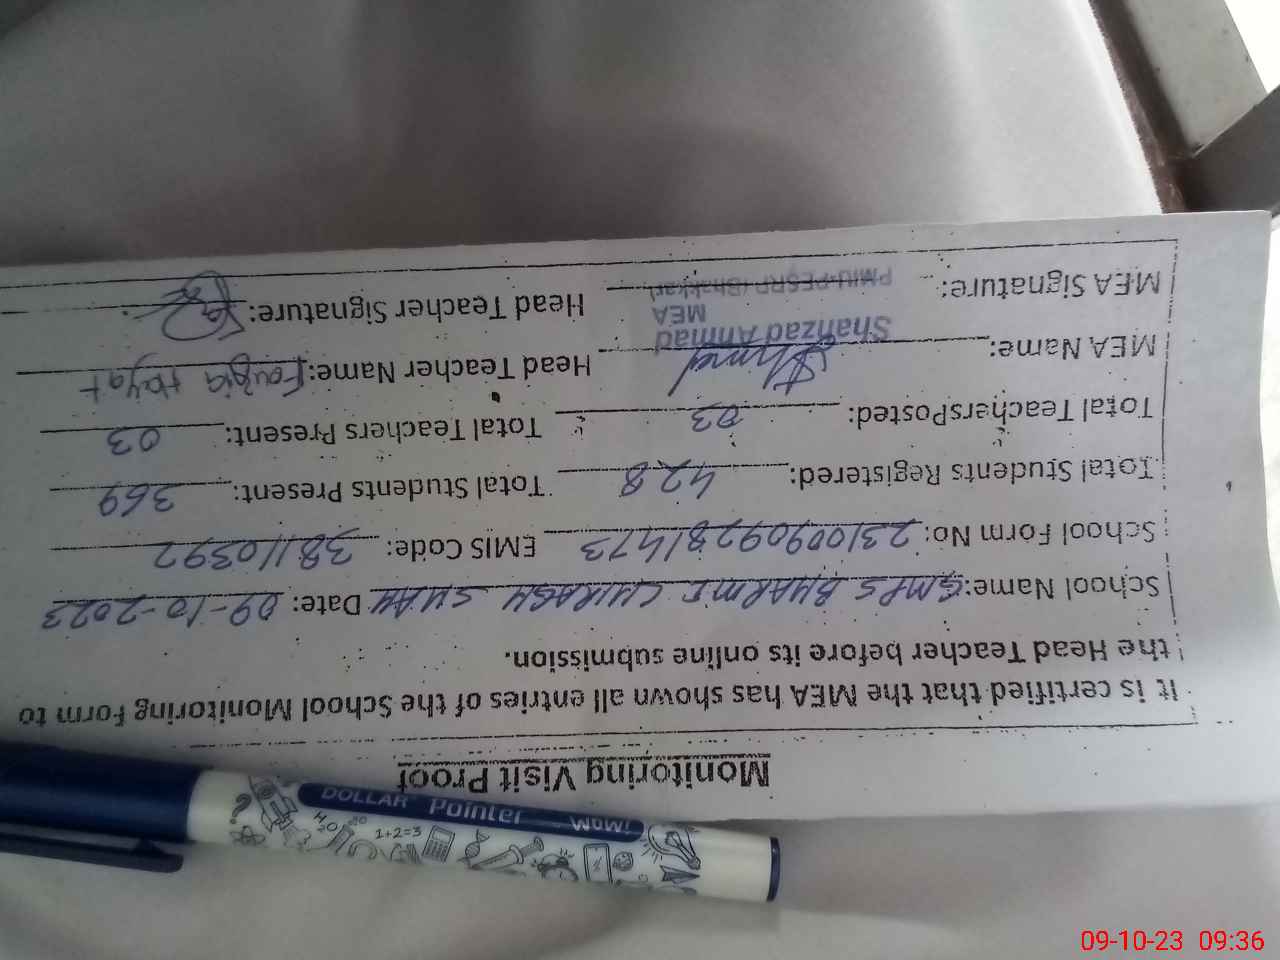 Monitoring Visit Proof
It is certified that the MEA has shown all entries of the School Monitoring Form to
the Head Teacher before its online submission.
School Name: GMPS BHARMI CHIRAGH SHAH Date: 09-10-2023
School Form No: 23100909281473 EMIS Code: 38110392
Total Students Registered: 428 Total Students Present: 369
Total TeachersPosted: 03 Total Teachers Present: 03
MEA Name: Shahzad Ahmad Head Teacher Name: Fouzia Hayat
MEA
MEA Signature: PMIU-PESRP (Bhakkar) Head Teacher Signature:
DOLLAR Pointer WOW!
H2O
1+2=3
09-10-23 09:36